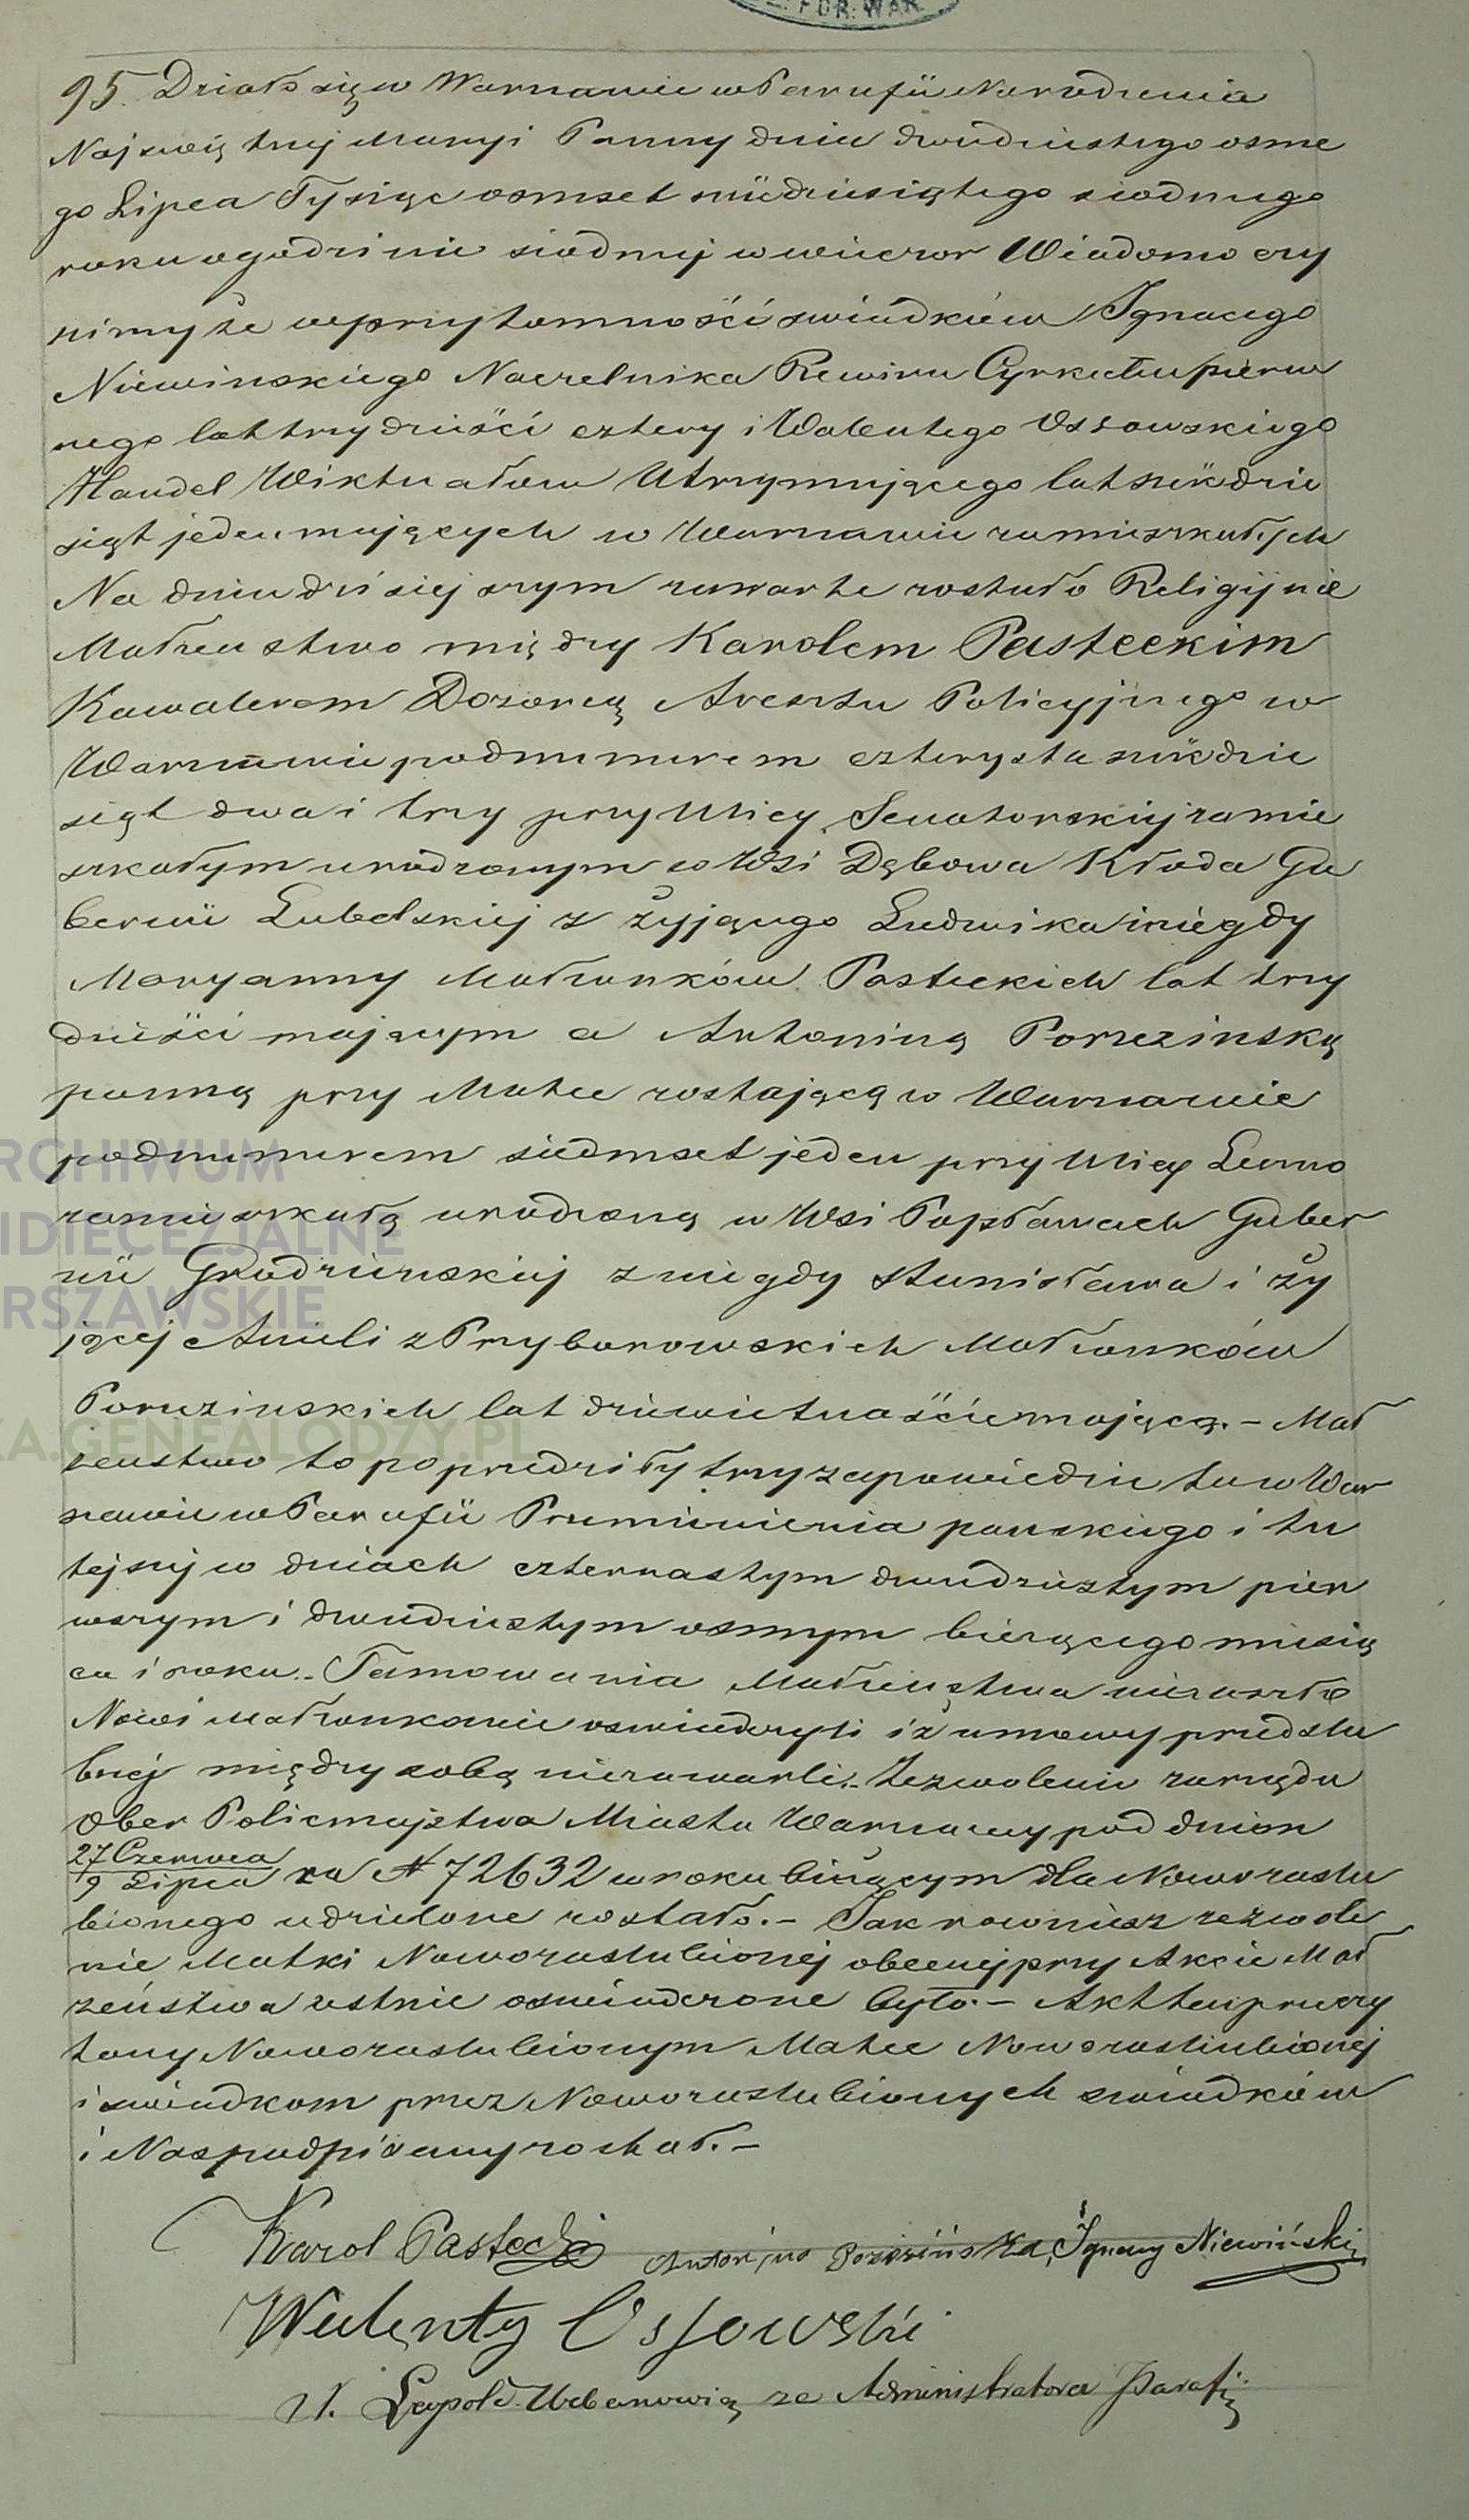 FOR: WAR
95. Działo się w Warszawie w Parafii Narodzenia
Najświętszej Maryi Panny dnia dwudziestego osme
go Lipca Tysiąc osmset sześdziesiątego siodmego
roku o godzinie siodmej w wieczor Wiadomo czy
nimy że w przytomności swiadków Ignacego
Niewinskiego Naczelnika Rewiru Cyrkułu pierw
szego lat trzydzieści cztery i Walentego Ossowskiego
Handel Wiktuałow Utrzymującego lat sześdzie
siąt jeden mających w Warszawie zamieszkałych
Na dniu dzisiejszym zawarte zostało Religijnie
Małżeństwo między Karolem Pasteckim
Kawalerem Dozorcą Aresztu Policyjnego w
Warszawie pod numerem czterysta sześdzie
siąt dwa i trzy przy Ulicy Senatorskiej zamie
szkałym urodzonym w Wsi Dębowa Kłoda Gu
bernii Lubelskiej z żyjącego Ludwika i niegdy
Maryanny Małżonków Pasteckich lat trzy
dzieści mającym a Antoniną Porzezinską
panną przy Matce zostającą w Warszawie
pod numerem siedmset jeden przy Ulicy Leszno
zamieszkałą urodzoną w Wsi Popławach Guber
nii Grodzieńskiej z niegdy Stanisława i ży
jącej Anieli z Przyborowskich Małżonków
Porzezinskich lat dziewietnaście mającą. – Mał
żenstwo to poprzedziły trzy zapowiedzie tu w War
szawie w Parafii Przemienienia panskiego i tu
tejszej w dniach czternastym dwudziestym pier
wszym i dwudziestym osmym bieżącego miesią
ca i roku. – Tamowania Małżeństwa nie zaszło
Nowi Małżonkowie oswiadczyli iż umowy przedslu
bnej między sobą nie zawarli. – Zezwolenie zarządu
Ober Policmajstra Miasta Warszawy pod dniem
27 Czerwca
9 Lipca za № 72632 w roku bieżącym dla Nowozaslu
bionego udzielone zostało. – Jak rownież zezwole
nie Matki Nowozaslubionej obecnej przy Akcie Mał
żeństwa ustnie oswiadczone było. – Akt ten przeczy
tany Nowozaslubionym Matce Nowozaslubionej
i swiadkom przez Nowozaslubionych swiadków
i Nas podpisany został. –
Karol Pastecki Antonina Porzezińska, Ignacy Niewiński
Walenty Ossowski
X. Leopold Urbanowicz za Administratora Parafii
ARCHIWUM
IDIECEZJALNE
RSZAWSKIE
KA.GENEALODZY.PL